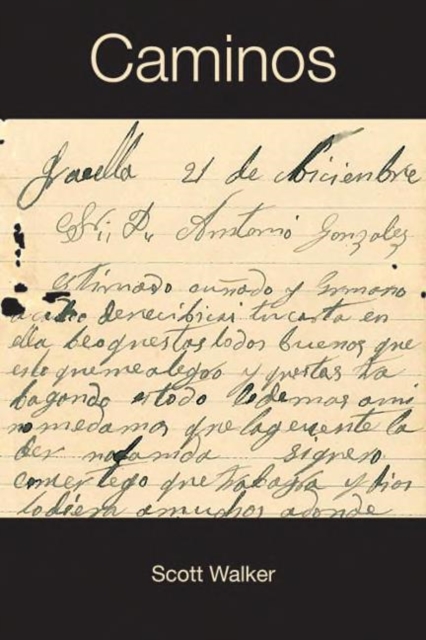 Caminos
21 de Diciembre
Sr. D. Antonio Gonzalez
estimado cuñado y ermano
de recibir tu carta en
ella beo questas todos buenos que
esto que me alegro y questas tra
bagando es todo lo demas a mi
no me da mas que la guente la
der no sanida siquero
comer tego que trabaga y dios
lo diera a muchos adonde
Scott Walker